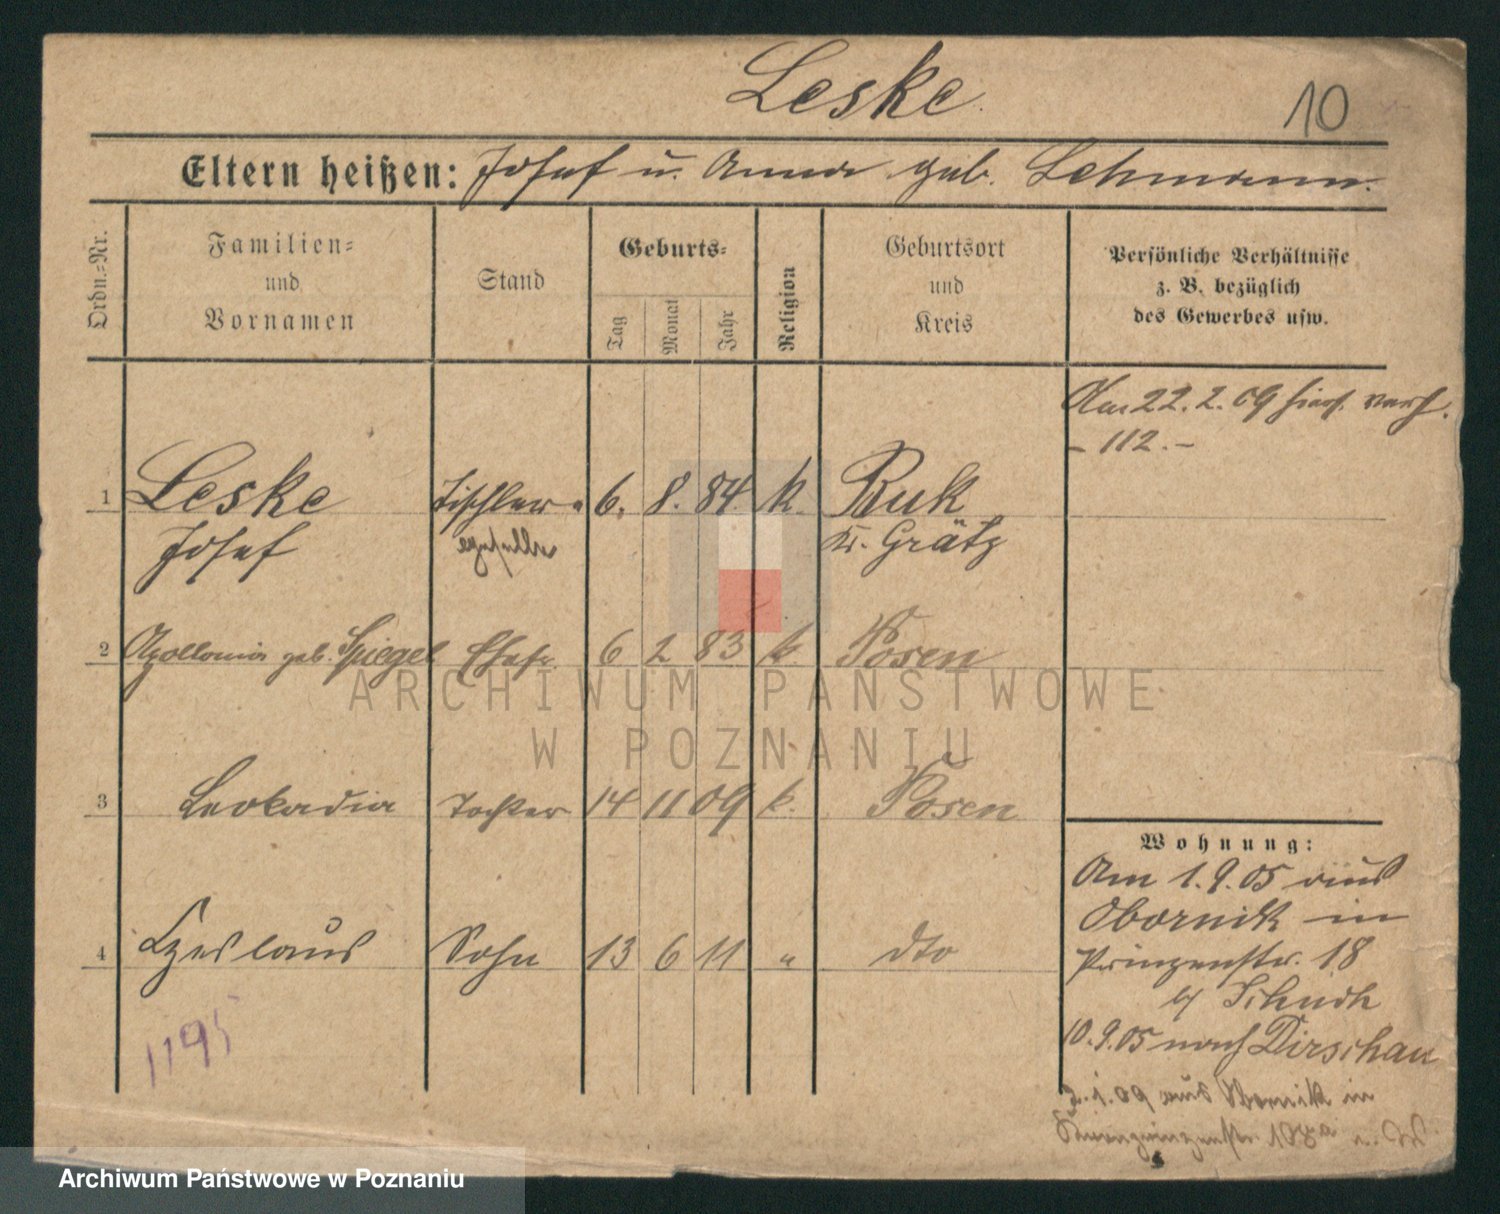 Leske
10
Eltern heißen: Josef u. Anna geb. Lehmann.
Ordn.=Nr.
Familien=
und
Vornamen
Stand
Geburts=
Tag
Monat
Jahr
Religion
Geburtsort
und
Kreis
Persönliche Verhältnisse
z. B. bezüglich
des Gewerbes usw.
Am 22.2.09 hier verh.
- 112. -
1 Leske Tischler= 6. 8. 84 k. Ruk
Josef geselle Kr. Grätz
2 Apollonia geb. Spiegel Ehefr. 6 2 83 k. Posen
3 Leokadia Tochter 14 11 09 k. Posen
4 Czeslaus Sohn 13 6 11 " dto
1195
Wohnung:
Am 1.9.05 aus
Obornik in
Prinzenstr. 18
b/
10.9.05 nach Dirschau
2.1.09 aus Obornik in
ARCHIWUM PAŃSTWOWE
W POZNANIU
Archiwum Państwowe w Poznaniu